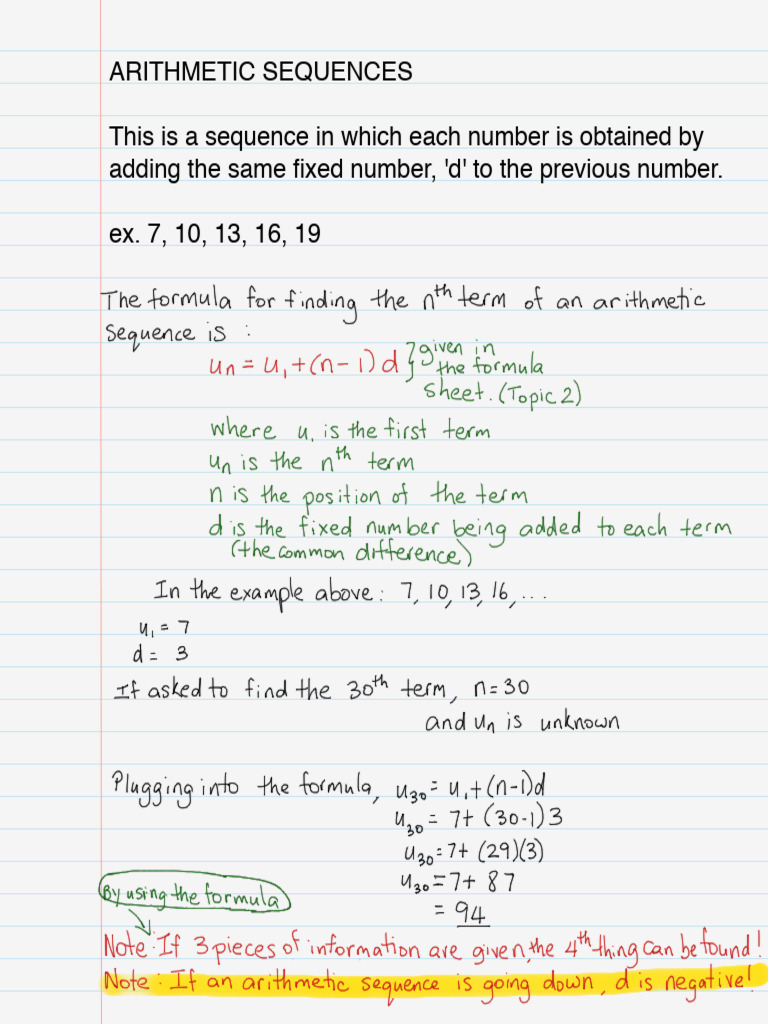 ARITHMETIC SEQUENCES
This is a sequence in which each number is obtained by
adding the same fixed number, 'd' to the previous number.
ex. 7, 10, 13, 16, 19
The formula for finding the nᵗʰ term of an arithmetic
sequence is :
uₙ = u₁ + (n - 1) d } given in
the formula
sheet. (Topic 2)
where u₁ is the first term
uₙ is the nᵗʰ term
n is the position of the term
d is the fixed number being added to each term
(the common difference)
In the example above: 7, 10, 13, 16, ...
u₁ = 7
d = 3
If asked to find the 30ᵗʰ term, n = 30
and uₙ is unknown
Plugging into the formula, u₃₀ = u₁ + (n-1)d
u₃₀ = 7 + (30-1)3
u₃₀ = 7 + (29)(3)
u₃₀ = 7 + 87
= 94
By using the formula
Note: If 3 pieces of information are given, the 4ᵗʰ thing can be found!
Note: If an arithmetic sequence is going down, d is negative!